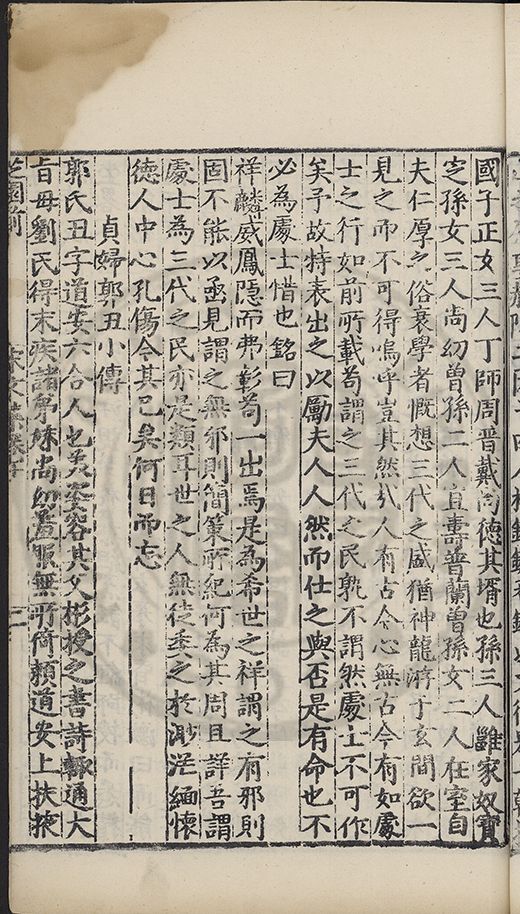 國子正女三人丁師周晉戴尚德其壻也孫三人關家奴寶
定孫女三人尚幼曾孫二人宜壽普蘭曾孫女二人在室自
夫仁厚之俗衰學者慨想三代之盛猶神龍游于玄間欲一
見之而不可得嗚乎豈其然㢤人有古今心無古今有如處
士之行如前所載苟謂之三代之民孰不謂然處士不可作
矣予故特表出之以勵夫人人然而仕之與否是有命也不
必為處士惜也銘曰
祥麟威鳳隠而弗彰苟一出焉是為希世之祥謂之有邪則
固不能以亟見謂之無邪則簡策所紀何為其周且詳吾謂
處士為三代之民亦是類耳世之人無徒委之於渺茫緬懷
德人中心孔傷今其已矣何日而忘
貞婦郭丑小傳
郭氏丑字道安六合人也美姿容其父彬授之書詩輙通大
旨母劉氏得末疾諸弟妹尚幼盥服無所倚頼道安上扶掖
芝園前